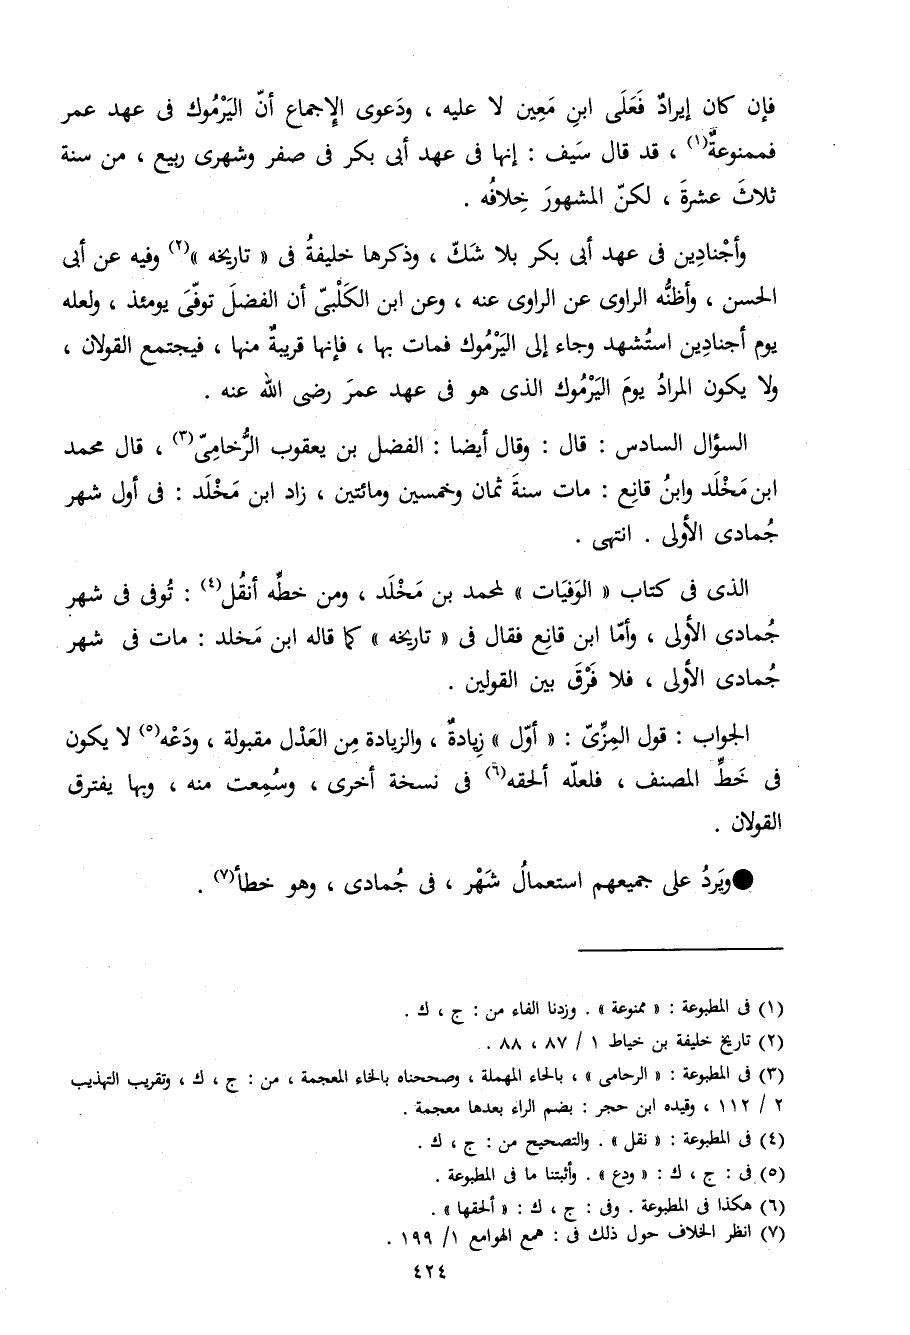 فإن كان إيرادٌ فَعَلَى ابنِ مَعِين لا عليه ، ودَعوى الإِجماع أنّ اليَرْمُوك فى عهد عمر
فممنوعةٌ(١) ، قد قال سَيف : إنها فى عهد أبى بكر فى صفر وشهرى ربيع ، من سنة
ثلاثَ عشرةَ ، لكنّ المشهورَ خِلافُه .
وأجْنادِين فى عهد أبى بكر بلا شكّ ، وذكرها خليفةُ فى « تاريخه »(٢) وفيه عن أبى
الحسن ، وأظنُّه الراوى عن الراوى عنه ، وعن ابن الكَلْبىّ أن الفضلَ توفّىَ يومئذ ، ولعله
يوم أجنادِين استُشهد وجاء إلى اليَرْمُوك فمات بها ، فإنها قريبةٌ منها ، فيجتمع القولان ،
ولا يكون المرادُ يومَ اليَرْمُوك الذى هو فى عهد عمرَ رضى الله عنه .
السؤال السادس : قال : وقال أيضا : الفضل بن يعقوب الرُّخامِىّ(٣) ، قال محمد
ابن مَخْلَد وابنُ قانِع : مات سنةَ ثمان وخمسين ومائتين ، زاد ابن مَخْلَد : فى أول شهر
جُمادى الأولى . انتهى .
الذى فى كتاب « الوَفَيات » لمحمد بن مَخْلَد ، ومن خطِّه أنقُل(٤) : تُوفى فى شهر
جُمادى الأولى ، وأمّا ابن قانِع فقال فى « تاريخه » كما قاله ابن مَخلد : مات فى شهر
جُمادى الأولى ، فلا فَرْقَ بين القولين .
الجواب : قول المِزِّىّ : « أوّل » زِيادةٌ ، والزيادة مِن العَدْل مقبولة ، ودَعْه(٥) لا يكون
فى خَطِّ المصنف ، فلعلّه ألحقه(٦) فى نسخة أخرى ، وسُمِعت منه ، وبها يفترق
القولان .
● ويَرِدُ على جميعهم استعمالُ شَهْر ، فى جُمادى ، وهو خطأ(٧) .
(١) فى المطبوعة : « ممنوعة » . وزدنا الفاء من : ج ، ك .
(٢) تاريخ خليفة بن خياط ١ / ٨٧ ، ٨٨ .
(٣) فى المطبوعة : « الرحامى » ، بالحاء المهملة ، وصححناه بالخاء المعجمة ، من : ج ، ك ، وتقريب التهذيب
٢ / ١١٢ ، وقيده ابن حجر : بضم الراء بعدها معجمة .
(٤) فى المطبوعة : « نقل » . والتصحيح من : ج ، ك .
(٥) فى : ج ، ك : « ودع » . وأثبتنا ما فى المطبوعة .
(٦) هكذا فى المطبوعة . وفى : ج ، ك : « ألحقها » .
(٧) انظر الخلاف حول ذلك فى : همع الهوامع ١/ ١٩٩ .
٤٢٤